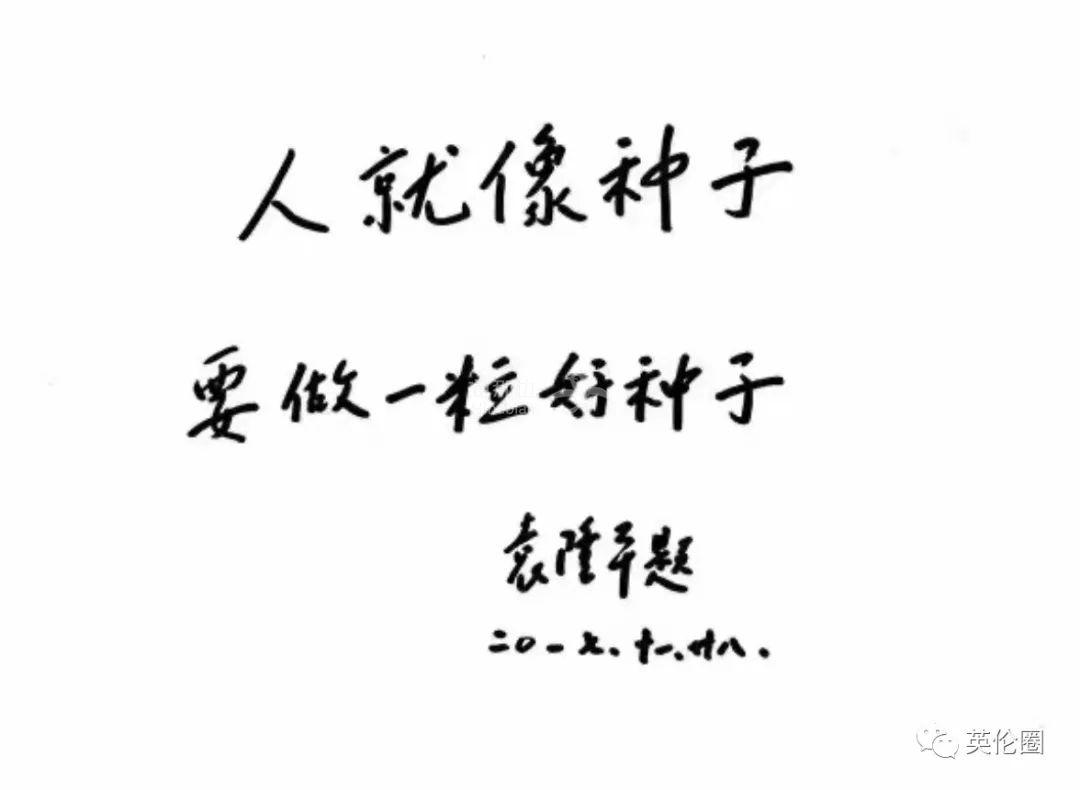 人就像种子
要做一粒好种子
袁隆平题
二〇一七、十一、廿八.
英伦圈